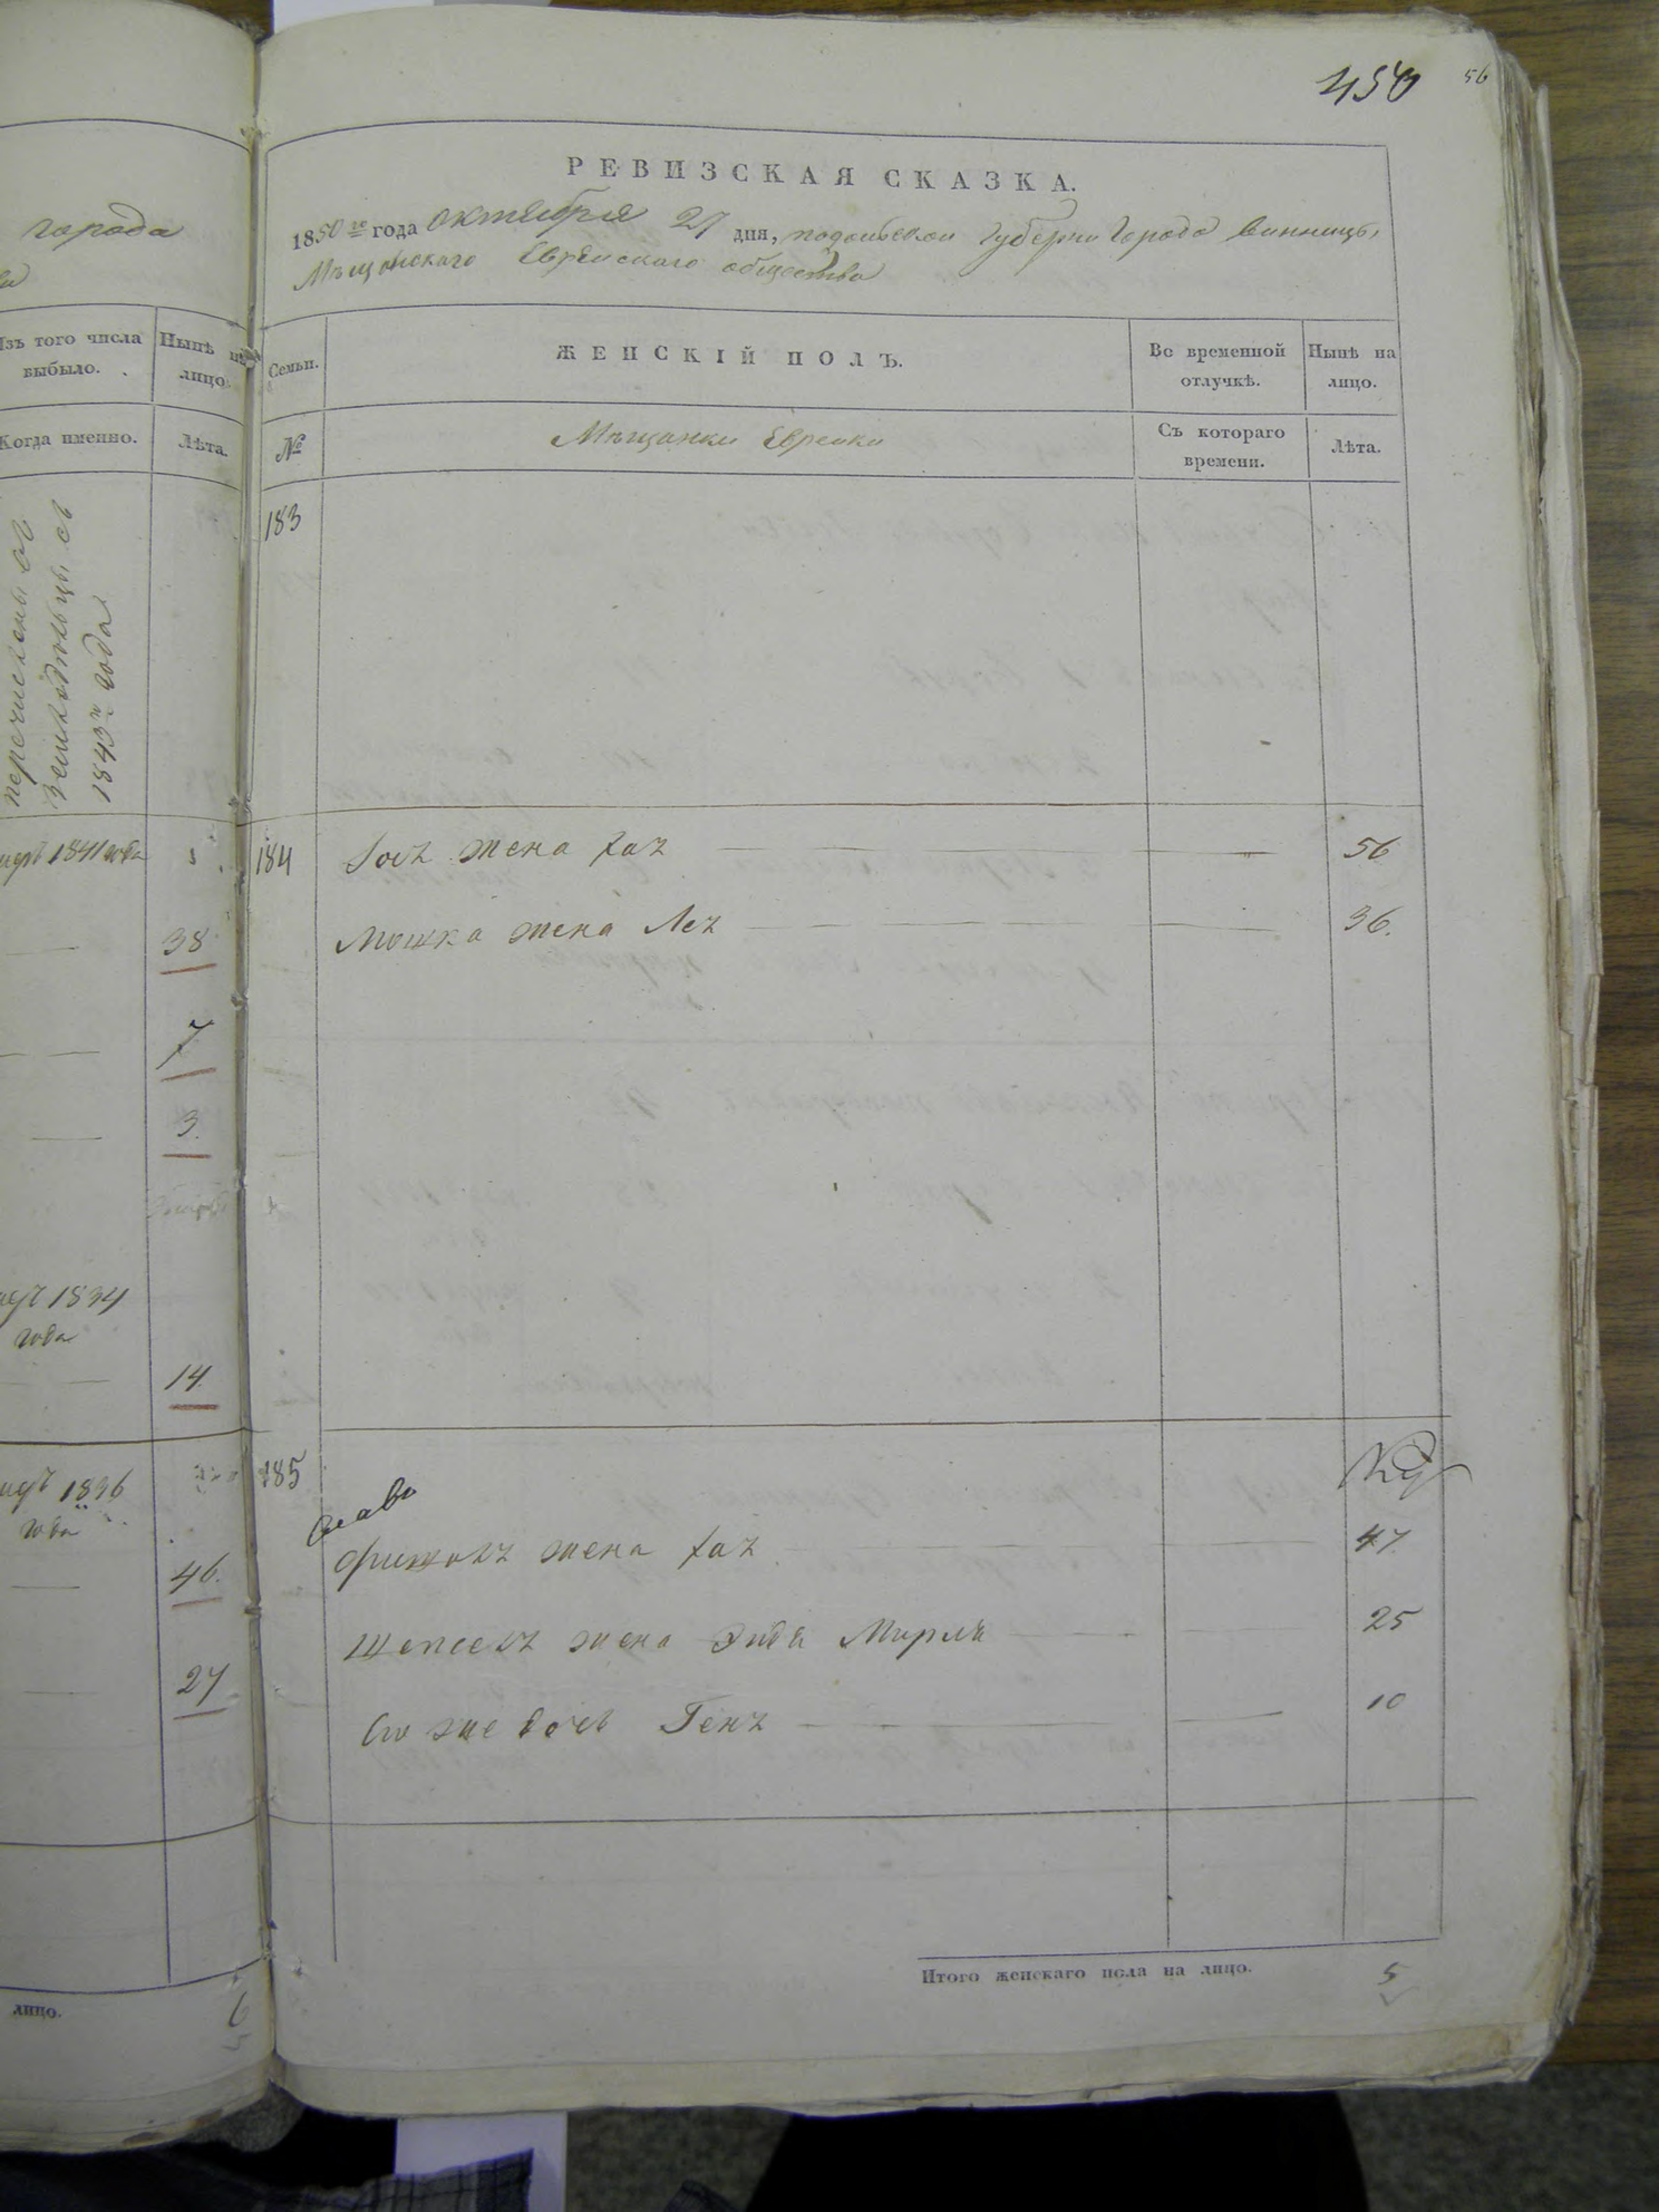 450 56
города
РЕВИЗСКАЯ СКАЗКА.
1850 го года октября 27 дня, подольской губерни города винницы,
Мѣщанскаго Еврейскаго общества
Изъ того числа выбыло.
Нынѣ на лицо.
Семьи.
ЖЕНСКІЙ ПОЛЪ.
Во временной отлучкѣ.
Нынѣ на лицо.
Когда именно.
Лѣта.
№
Мѣщанки Евреики
Съ котораго времени.
Лѣта.
перечислены въ
земледѣльцы съ
1843 года
183
1841 года
184 жена хая 56
38
Мошка жена Лея 36.
7
3.
1834
года
14.
1836
года
185
Фишеля жена хая 47
46.
Шепселя жена Эидя Мирля 25
27
Ево же дочь Геня 10
Итого женскаго пола на лицо. 5
лицо. 6